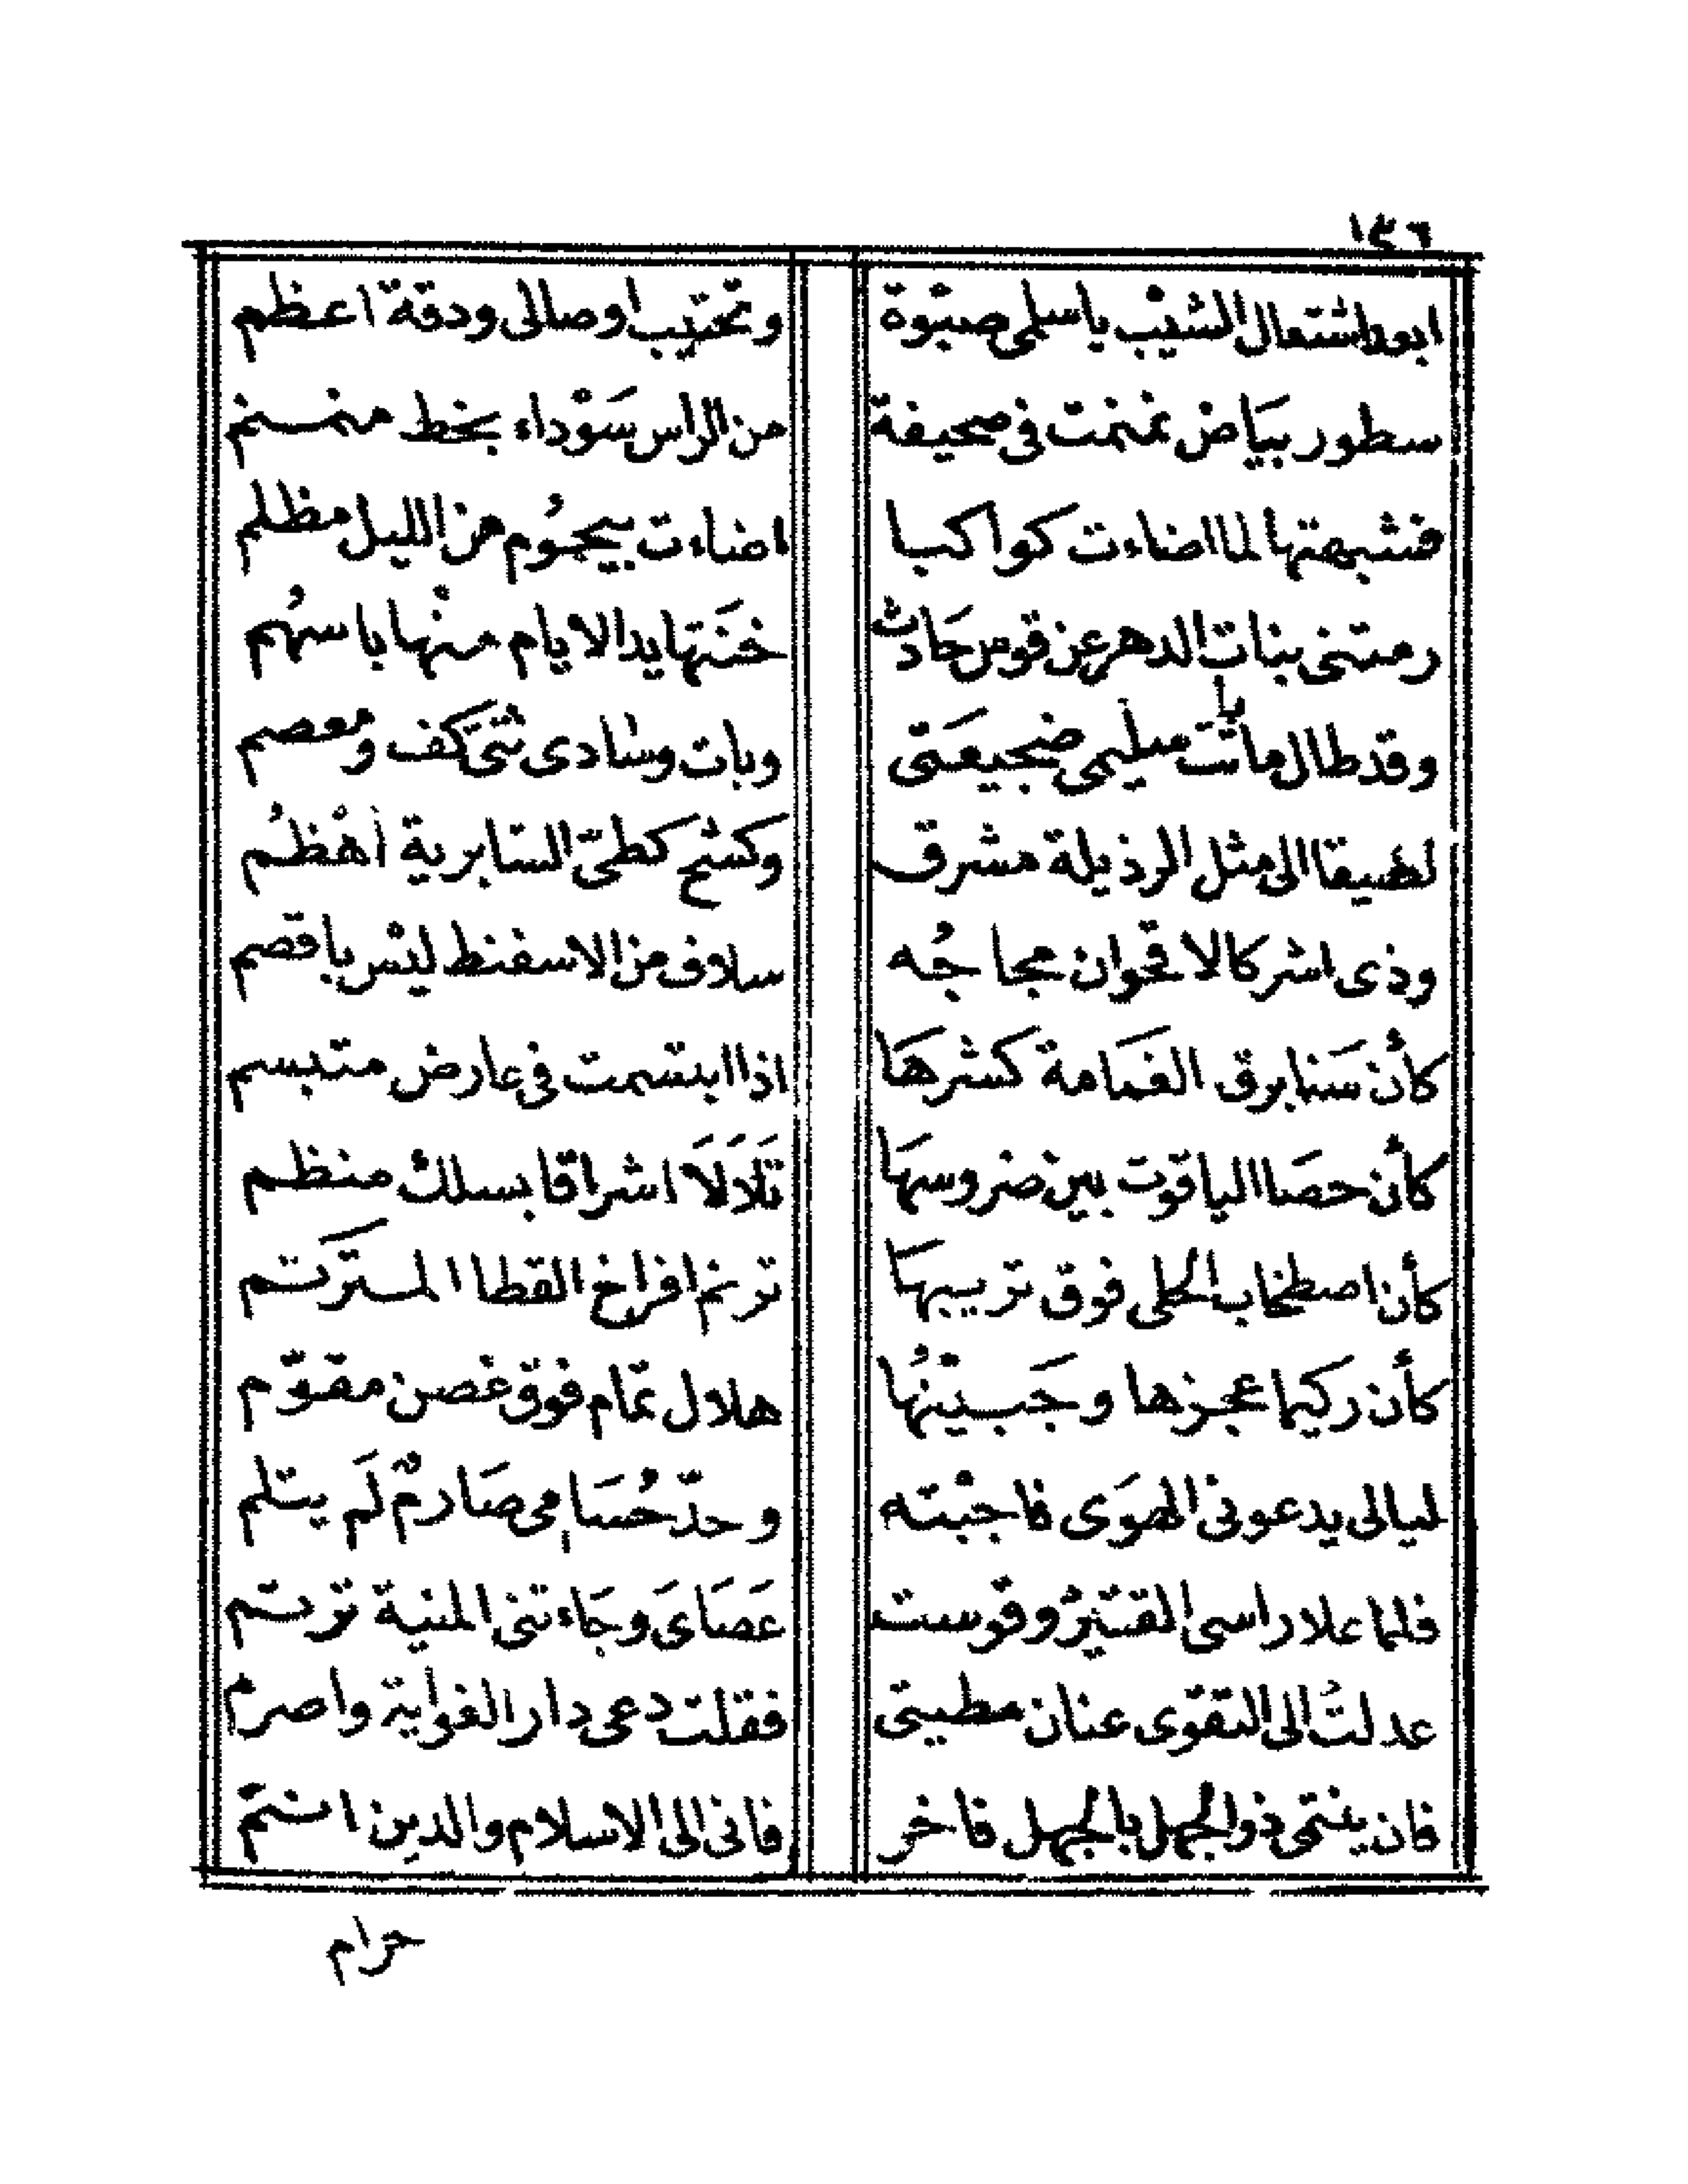 ١٣٦
ابعد اشتعال الشيْب يا سلمى صبْوة وتحنيب اوصالى ودقة اعظم
سطور بيَاض نمنمت فى صحيفة من الراس سَوْداء بخط منمنم
فشبهتها لما اضاءت كواكبا اضاءت بيحمُوم من الليل مظلم
رمتنى بنات الدهر عن قوس حَادث حَنَتها يد الايام منْها باسهُم
وقد طال ما باتت سليمى ضجيعَتى وبات وسَادى ثنى كف ومعصم
لطيفا الى مثل الرذيلة مشرق وكشح كطىّ السّابرية أهْظُم
وذى اشر كالاقحوان مجاجُه سلاف من الاسفنط ليْس باقصم
كأن سَنا برق الغمَامة كشرهَا اذا ابتسمت فى عارض متبسم
كأن حصَا الياقوت بين ضروسهَا تَلَالَا اشراقا بسلك منظم
كأن اصطخاب الحلى فوق تريبهَا ترنم افراخ القطا المسترَنم
كأن ركيما عجزها وجَبينُها هلال تمام فوق غصن مقوّم
ليالى يدعونى الهوَى فاجبْته وحدّ حُسَامى صَارمٌ لَم يتلم
فلما علا راسى القتيْرُ وقوست عَصَاىَ وجَاءتنى المنية ترتم
عدلتُ الى التقوى عنان مطيتى فقلت دعى دار الغواية واصرم
فان ينتمى ذو الجهل بالجهل فاخر فانى الى الاسلام والدين انتم
حرام